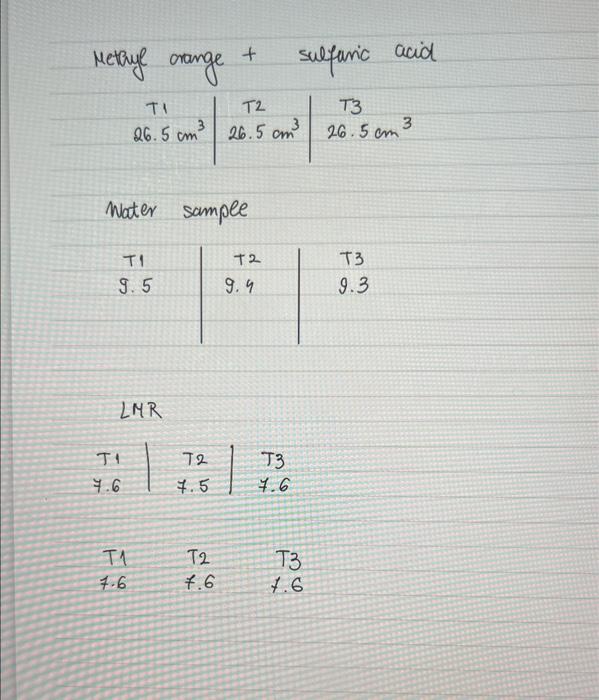 Methyl orange + sulfuric acid
T1 T2 T3
26.5 cm³ 26.5 cm³ 26.5 cm³
Water sample
T1 T2 T3
9.5 9.4 9.3
LMR
T1 T2 T3
7.6 7.5 7.6
T1 T2 T3
7.6 7.6 7.6